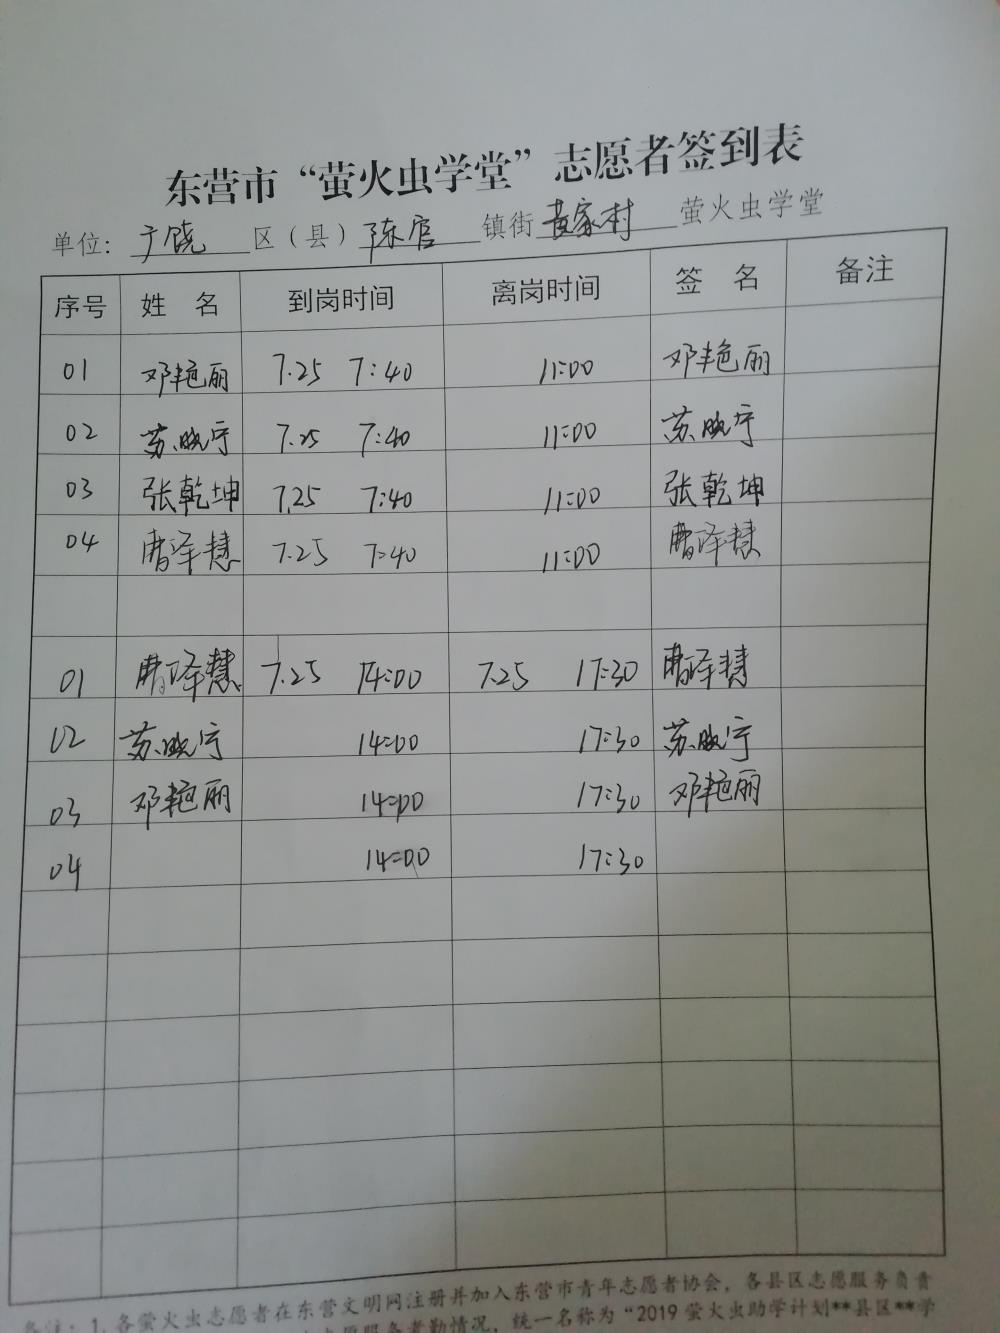 东营市“萤火虫学堂”志愿者签到表
单位：广饶区（县）陈官镇街袁家村萤火虫学堂
序号 姓 名 到岗时间 离岗时间 签 名 备注
01 邓艳丽 7.25 7:40 11:00 邓艳丽
02 苏晓宁 7.25 7:40 11:00 苏晓宁
03 张乾坤 7.25 7:40 11:00 张乾坤
04 曹泽慧 7.25 7:40 11:00 曹泽慧
01 曹泽慧 7.25 14:00 7.25 17:30 曹泽慧
02 苏晓宁 14:00 17:30 苏晓宁
03 邓艳丽 14:00 17:30 邓艳丽
04 14:00 17:30
备注：1.各萤火虫志愿者在东营文明网注册并加入东营市青年志愿者协会，各县区志愿服务负责
志愿服务考勤情况，统一名称为“2019萤火虫助学计划**县区**学